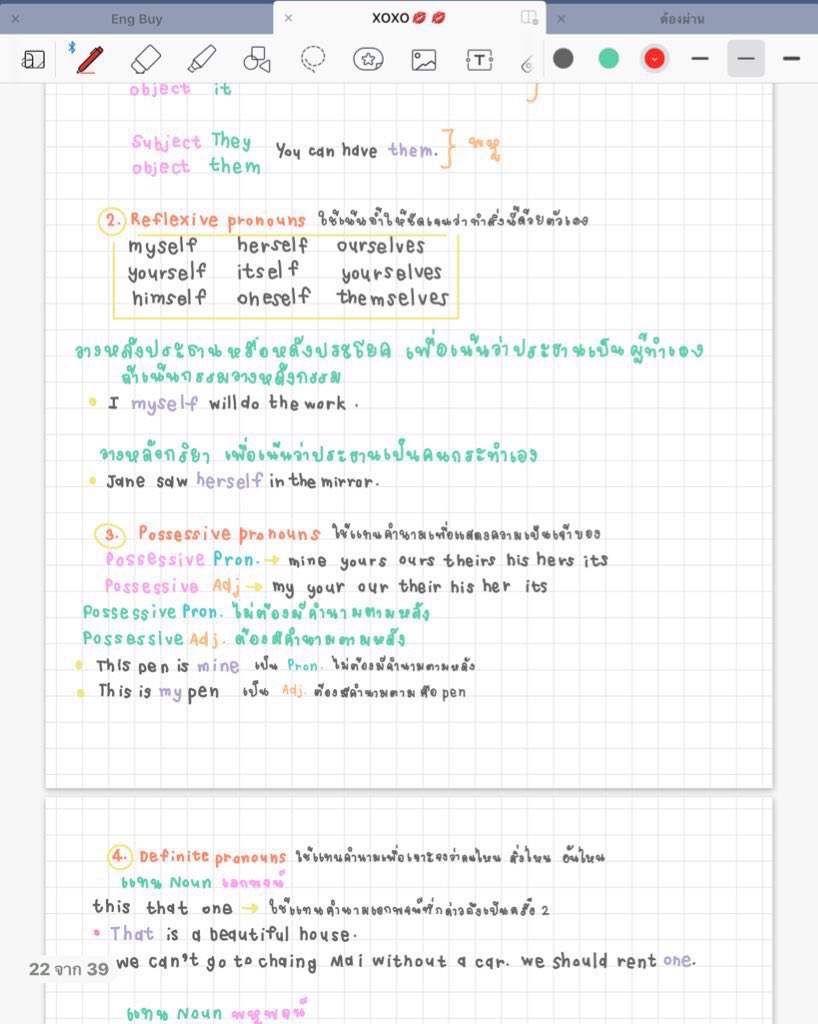 Eng Buy
XOXO💋💋
ต้องผ่าน
object it
Subject They
object them
You can have them. } พหู
2. Reflexive pronouns ใช้เน้นย้ำให้ชัดเจนว่าทำสิ่งนี้ด้วยตัวเอง
myself herself ourselves
yourself itself yourselves
himself oneself themselves
วางหลังประธาน หรือหลังประโยค เพื่อเน้นว่าประธานเป็นผู้ทำเอง
ถ้าเน้นกรรมวางหลังกรรม
• I myself will do the work.
วางหลังกริยา เพื่อเน้นว่าประธานเป็นคนกระทำเอง
• Jane saw herself in the mirror.
3. Possessive pronouns ใช้แทนคำนามเพื่อแสดงความเป็นเจ้าของ
Possessive Pron. → mine yours ours theirs his hers its
Possessive Adj → my your our their his her its
Possessive Pron. ไม่ต้องมีคำนามตามหลัง
Possessive Adj. ต้องมีคำนามตามหลัง
• This pen is mine เป็น Pron. ไม่ต้องมีคำนามตามหลัง
• This is my pen เป็น Adj. ต้องมีคำนามตาม คือ pen
4. Definite pronouns ใช้แทนคำนามเพื่อเจาะจงว่าคนไหน สิ่งไหน อันไหน
แทน Noun เอกพจน์
this that one → ใช้แทนคำนามเอกพจน์ที่กล่าวถึงเป็นครั้ง 2
• That is a beautiful house.
we can't go to chaing Mai without a car. we should rent one.
22 จาก 39
แทน Noun พหูพจน์